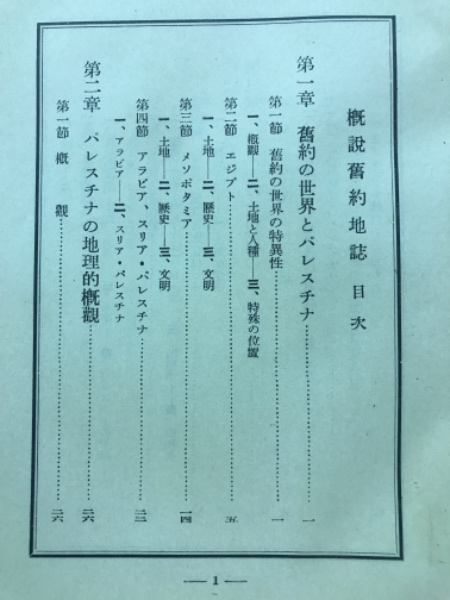 概說舊約地誌 目次
第一章 舊約の世界とパレスチナ……………一
第一節 舊約の世界の特異性……………一
一、概觀――二、土地と人種――三、特殊の位置
第二節 エジプト……………五
一、土地――二、歷史――三、文明
第三節 メソポタミア……………一四
一、土地――二、歷史――三、文明
第四節 アラビア、スリア・パレスチナ……………二三
一、アラビア――二、スリア・パレスチナ
第二章 パレスチナの地理的概觀……………二六
第一節 概觀……………二六
— 1 —